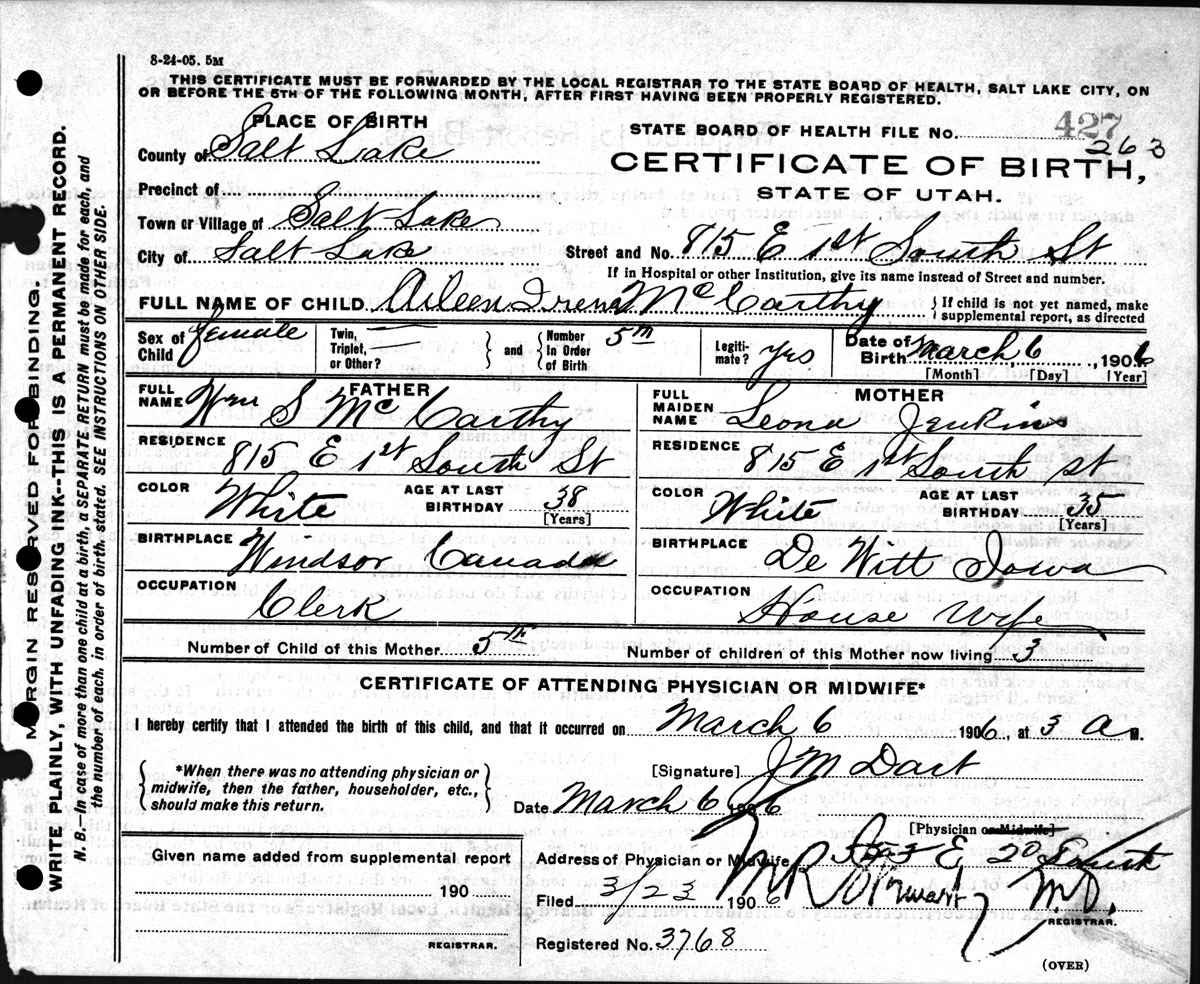 8-24-05. 5M
THIS CERTIFICATE MUST BE FORWARDED BY THE LOCAL REGISTRAR TO THE STATE BOARD OF HEALTH, SALT LAKE CITY, ON
OR BEFORE THE 5TH OF THE FOLLOWING MONTH, AFTER FIRST HAVING BEEN PROPERLY REGISTERED.
PLACE OF BIRTH
STATE BOARD OF HEALTH FILE No. 427
263
County of Salt Lake
CERTIFICATE OF BIRTH,
STATE OF UTAH.
Precinct of
Town or Village of Salt Lake
City of Salt Lake
Street and No. 815 E 1st South St
If in Hospital or other Institution, give its name instead of Street and number.
FULL NAME OF CHILD Aileen Irene McCarthy { If child is not yet named, make
supplemental report, as directed
Sex of Child female Twin, Triplet, or Other? } and { Number In Order of Birth 5th Legiti-mate? Yes Date of Birth March 6, 1906
[Month] [Day] [Year]
FATHER
MOTHER
FULL NAME Wm S McCarthy
FULL MAIDEN NAME Leona Jenkins
RESIDENCE 815 E 1st South St
RESIDENCE 815 E 1st South St
COLOR White AGE AT LAST BIRTHDAY 38 [Years]
COLOR White AGE AT LAST BIRTHDAY 35 [Years]
BIRTHPLACE Windsor Canada
BIRTHPLACE De Witt Iowa
OCCUPATION Clerk
OCCUPATION House Wife
Number of Child of this Mother 5th Number of children of this Mother now living 3
CERTIFICATE OF ATTENDING PHYSICIAN OR MIDWIFE*
I hereby certify that I attended the birth of this child, and that it occurred on March 6 1906, at 3 A M.
{ *When there was no attending physician or
midwife, then the father, householder, etc.,
should make this return. }
[Signature] J M Dart
Date March 6 1906
[Physician or Midwife]
Given name added from supplemental report
190
REGISTRAR.
Address of Physician or Midwife E 2d South
Filed 3/23 1906 M.D.
REGISTRAR.
Registered No. 3768
(OVER)
MARGIN RESERVED FOR BINDING.
WRITE PLAINLY, WITH UNFADING INK--THIS IS A PERMANENT RECORD.
N. B.—In case of more than one child at a birth, a SEPARATE RETURN must be made for each, and
the number of each, in order of birth, stated. SEE INSTRUCTIONS ON OTHER SIDE.